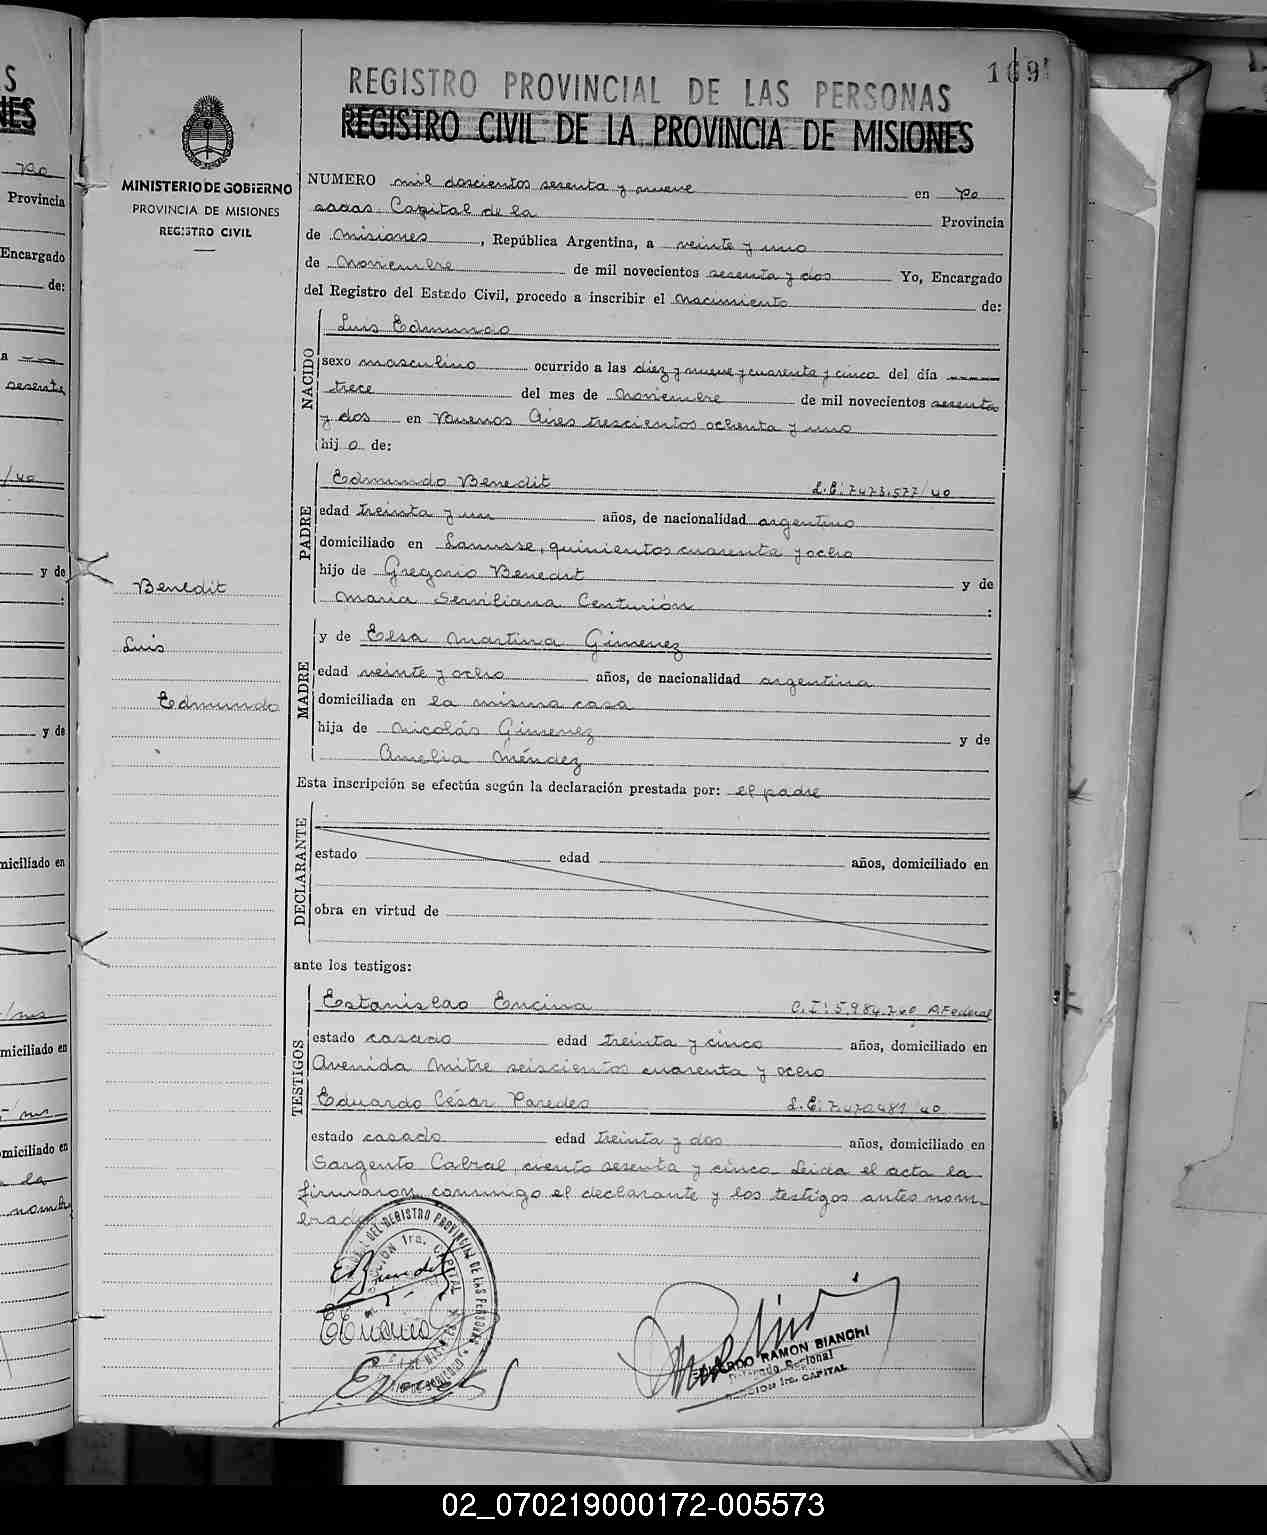 169
REGISTRO PROVINCIAL DE LAS PERSONAS
REGISTRO CIVIL DE LA PROVINCIA DE MISIONES
MINISTERIO DE GOBIERNO
PROVINCIA DE MISIONES
REGISTRO CIVIL
NUMERO mil doscientos sesenta y nueve en Po
sadas, Capital de la Provincia
de Misiones, República Argentina, a veinte y uno
de Noviembre de mil novecientos sesenta y dos Yo, Encargado
del Registro del Estado Civil, procedo a inscribir el Nacimiento de:
NACIDO
Luis Edmundo
sexo masculino ocurrido a las diez y nueve y cuarenta y cinco del día
trece del mes de Noviembre de mil novecientos sesenta
y dos en Buenos Aires trescientos ochenta y uno
hijo de:
PADRE
Edmundo Benedit L.E: 7.473.577/40
edad treinta y un años, de nacionalidad argentino
domiciliado en Lanusse, quinientos cuarenta y ocho
hijo de Gregorio Benedit y de
Maria Serviliana Centurión :
Benedit
Luis
Edmundo
MADRE
y de Elsa Martina Gimenez
edad veinte y ocho años, de nacionalidad argentina
domiciliada en la misma casa
hija de Nicolás Gimenez y de
Amelia Méndez
Esta inscripción se efectúa según la declaración prestada por: el padre
DECLARANTE
estado edad años, domiciliado en
obra en virtud de
ante los testigos:
TESTIGOS
Estanislao Encina C.I: 5.984.740 P.Federal
estado casado edad treinta y cinco años, domiciliado en
Avenida Mitre seiscientos cuarenta y ocho
Eduardo César Paredes L.E: 7.470.481/40
estado casado edad treinta y dos años, domiciliado en
Sargento Cabral, ciento sesenta y cinco. Leida el acta la
firmaron conmigo el declarante y los testigos antes nom-
brados
DEL REGISTRO PROVINCIAL DE LAS PERSONAS
1ra. CAPITAL
EDUARDO RAMON BIANCHI
Delegado Regional
SECCION 1ra. CAPITAL
02_070219000172-005573